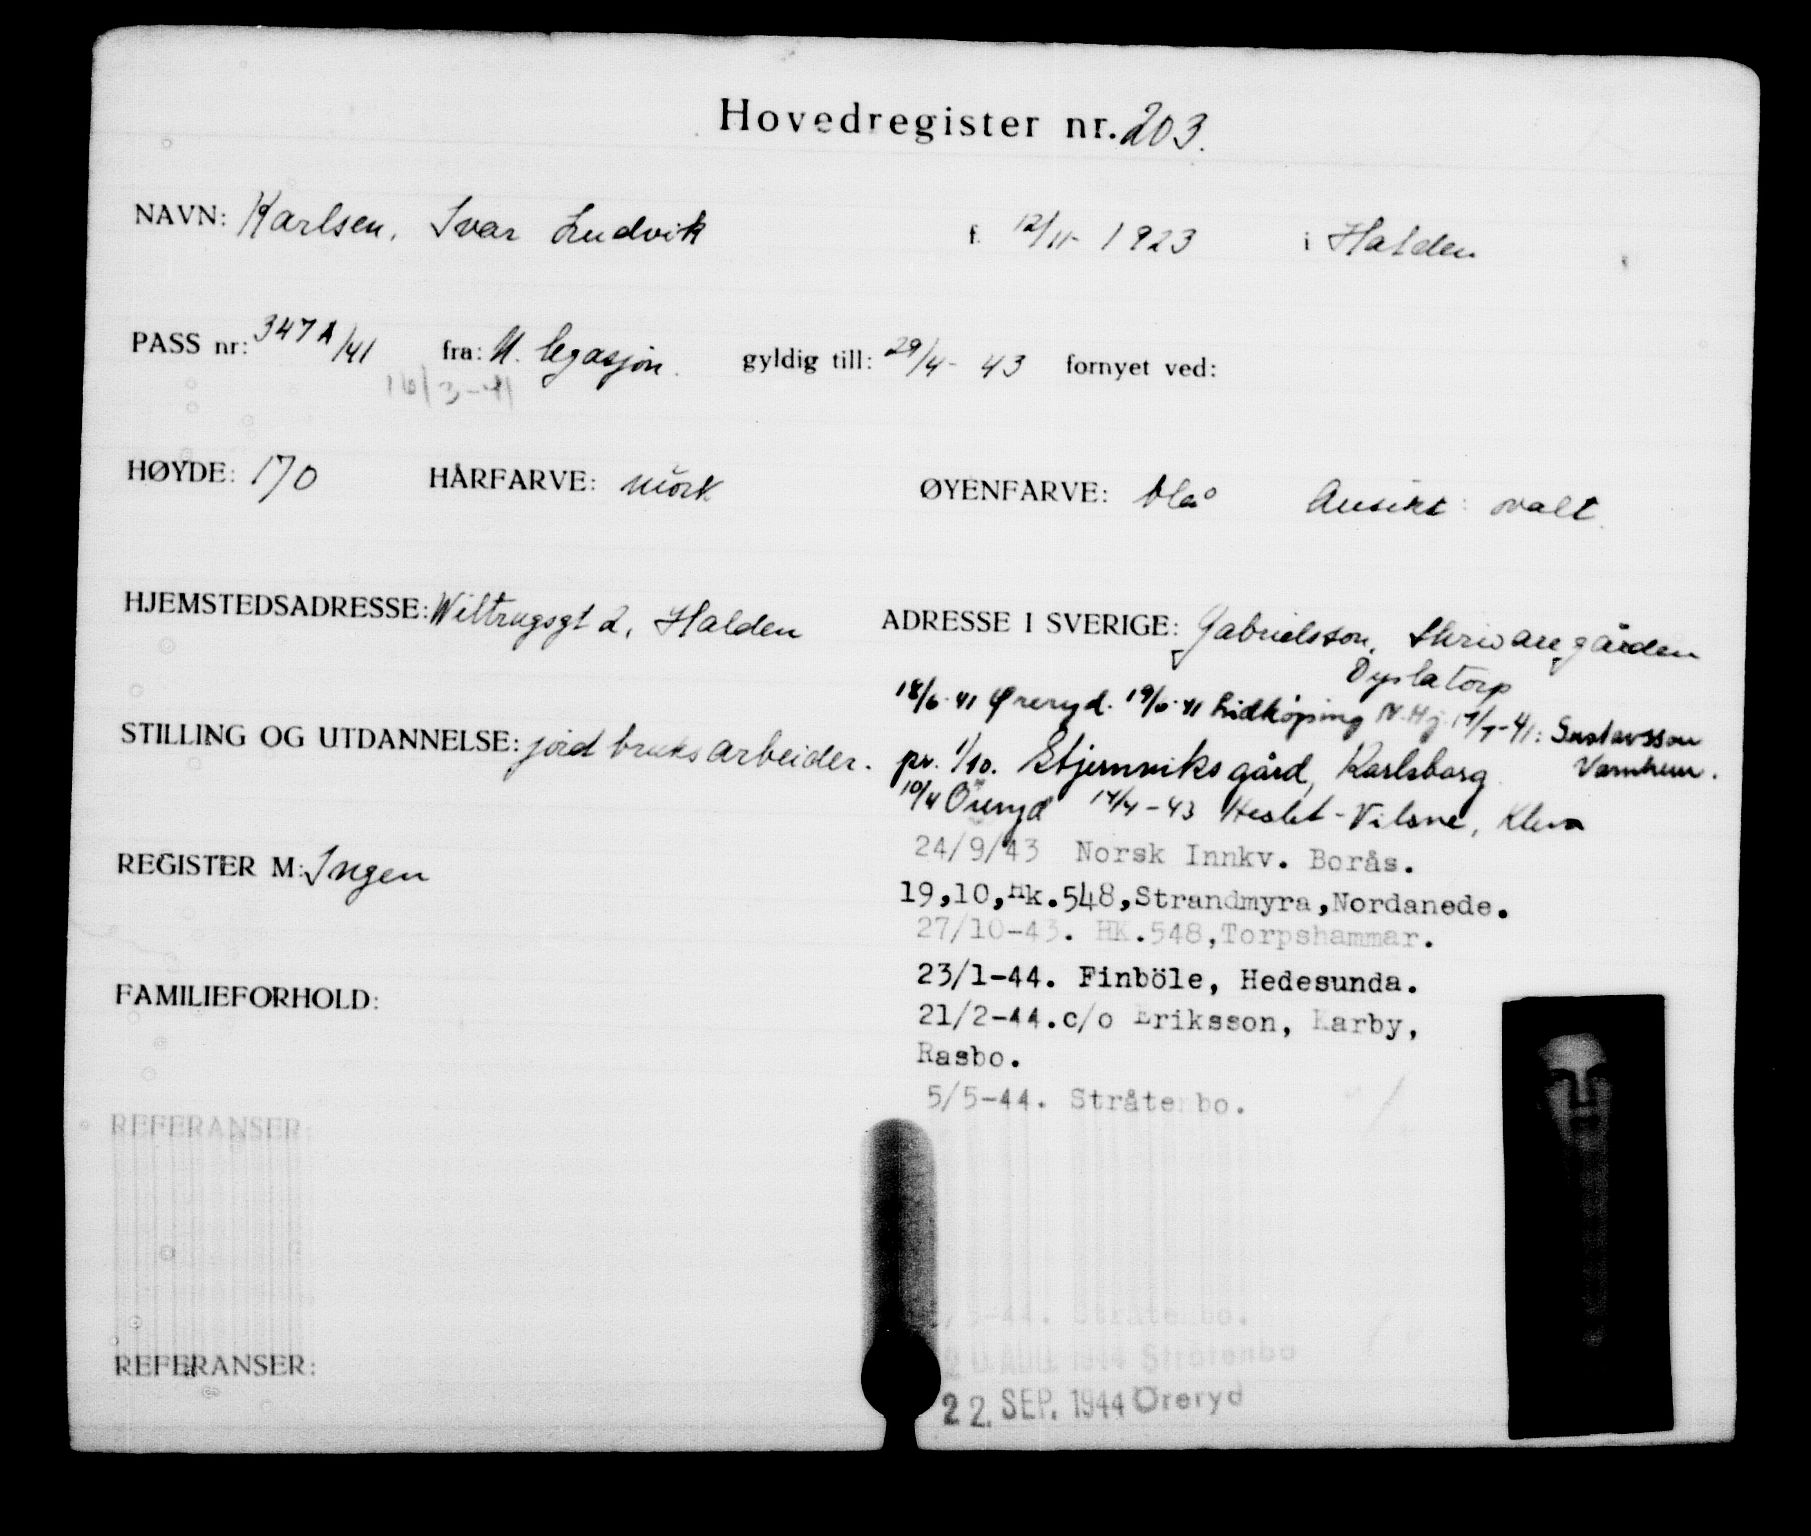 Hovedregister nr. 203.
NAVN: Karlsen, Ivar Ludvik f. 12/11- 1923 i Halden
PASS nr: 347A/41 fra: legasjon. gyldig till: 29/4- 43 fornyet ved:
16/3-41
HØYDE: 170 HÅRFARVE: mörk ØYENFARVE: blå Ansikt: ovalt.
HJEMSTEDSADRESSE: Wiltrugsgt 2, Halden ADRESSE I SVERIGE: Gabrielsson, Skrivaregården
Dyslatorp
18/6-41 Øreryd. 19/6-41 Lidköping N.Hj. 17/7-41: Gustavsson
Varnhem.
STILLING OG UTDANNELSE: jordbruksarbeider. pr. 1/10. Stjernviks gård, Karlsborg
10/4 Öreryd 14/4-43 Vilsne, Kleva
24/9/43 Norsk Innkv. Borås.
REGISTER M: Ingen 19,10,Hk.548,Strandmyra,Nordanede.
27/10-43. HK.548,Torpshammar.
23/1-44. Finböle, Hedesunda.
FAMILIEFORHOLD:
21/2-44.c/o Eriksson, Karby,
Rasbo.
5/5-44. Stråtenbo.
REFERANSER:
/5-44. Stråtenbo.
20 AUG 1944 Stråtenbo
REFERANSER:
22. SEP. 1944 Öreryd